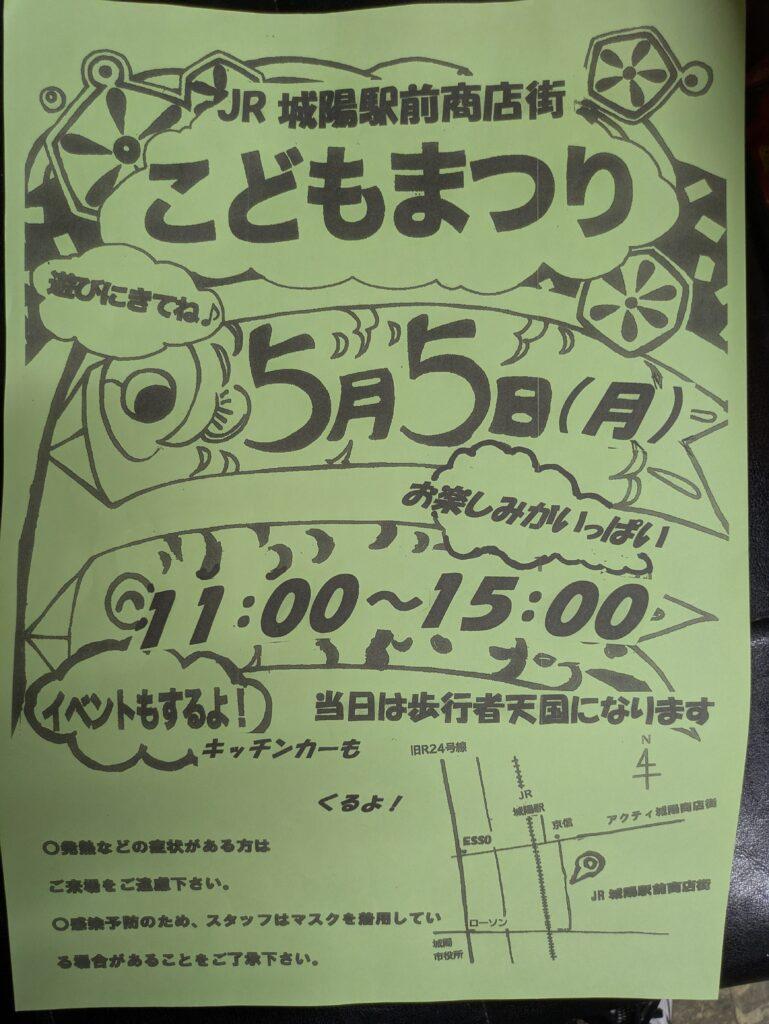 JR 城陽駅前商店街
こどもまつり
遊びにきてね♪
5月5日(月)
お楽しみがいっぱい
11:00～15:00
イベントもするよ!
当日は歩行者天国になります
キッチンカーも
くるよ!
○発熱などの症状がある方は
ご来場をご遠慮下さい。
○感染予防のため、スタッフはマスクを着用してい
る場合があることをご了承下さい。
旧R24号線
N
JR
城陽駅
京信
アクティ城陽商店街
ESSO
JR 城陽駅前商店街
ローソン
城陽
市役所